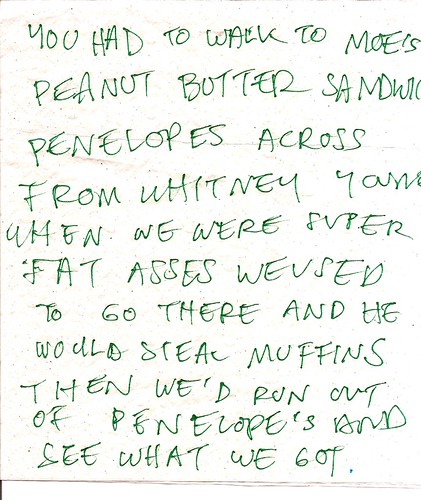 YOU HAD TO WALK TO MOE'S
PEANUT BUTTER SANDWIC
PENELOPES ACROSS
FROM WHITNEY YOUN
WHEN WE WERE SUPER
FAT ASSES WE USED
TO GO THERE AND HE
WOULD STEAL MUFFINS
THEN WE'D RUN OUT
OF PENELOPE'S AND
SEE WHAT WE GOT.